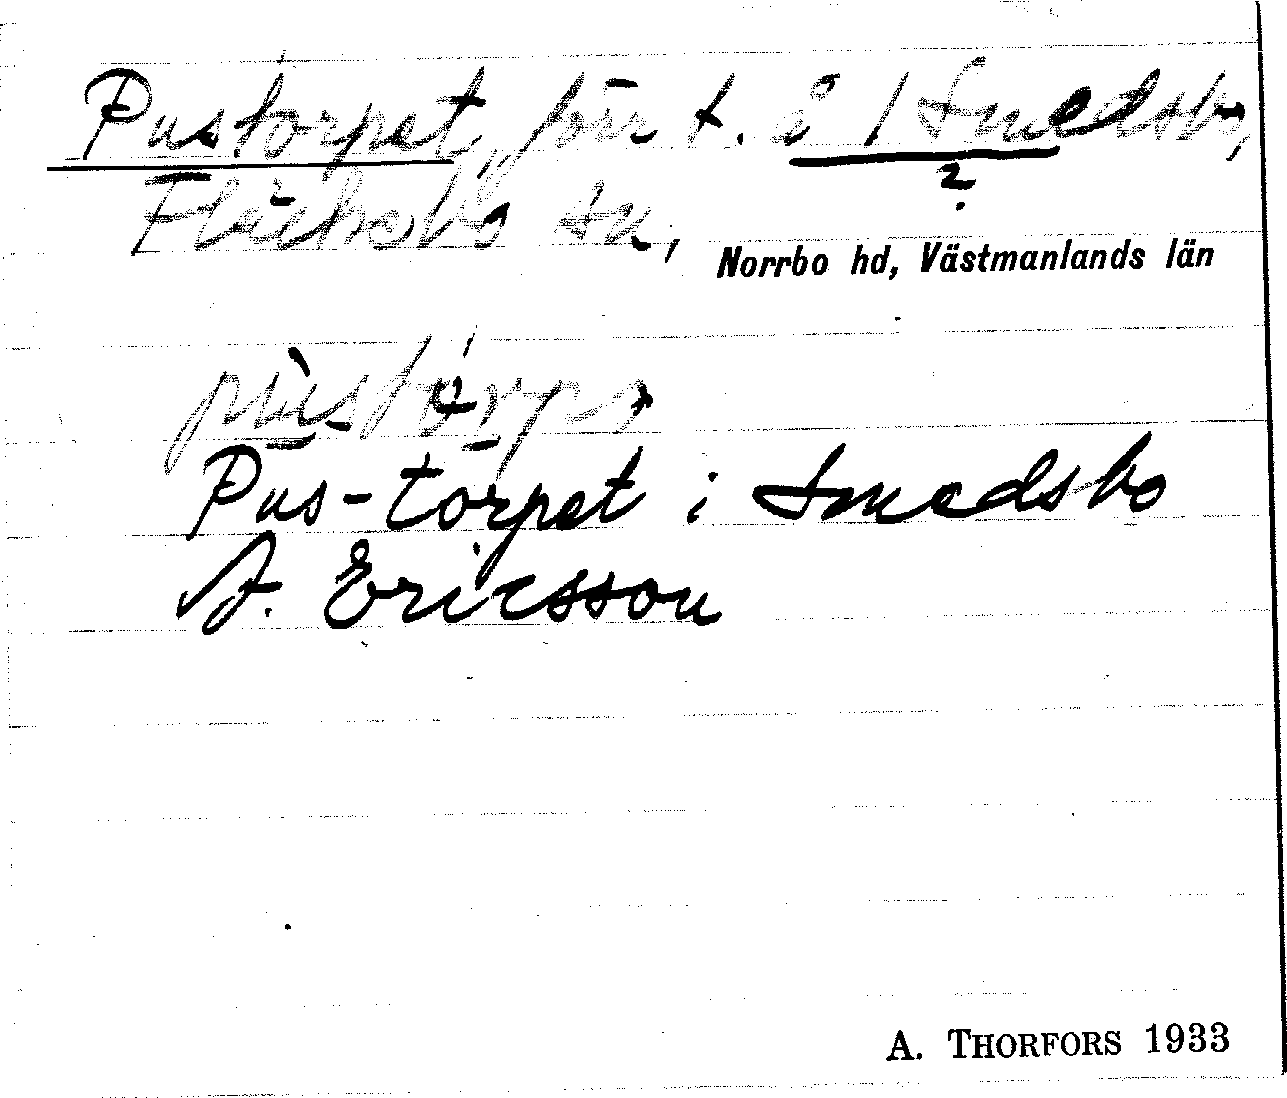 Pustorpet, förr t. å 1 Smedsbo,
?
Fläckebo sn,
Norrbo hd, Västmanlands län
Pus-torpet i Smedsbo
A. Ericsson
A. THORFORS 1933